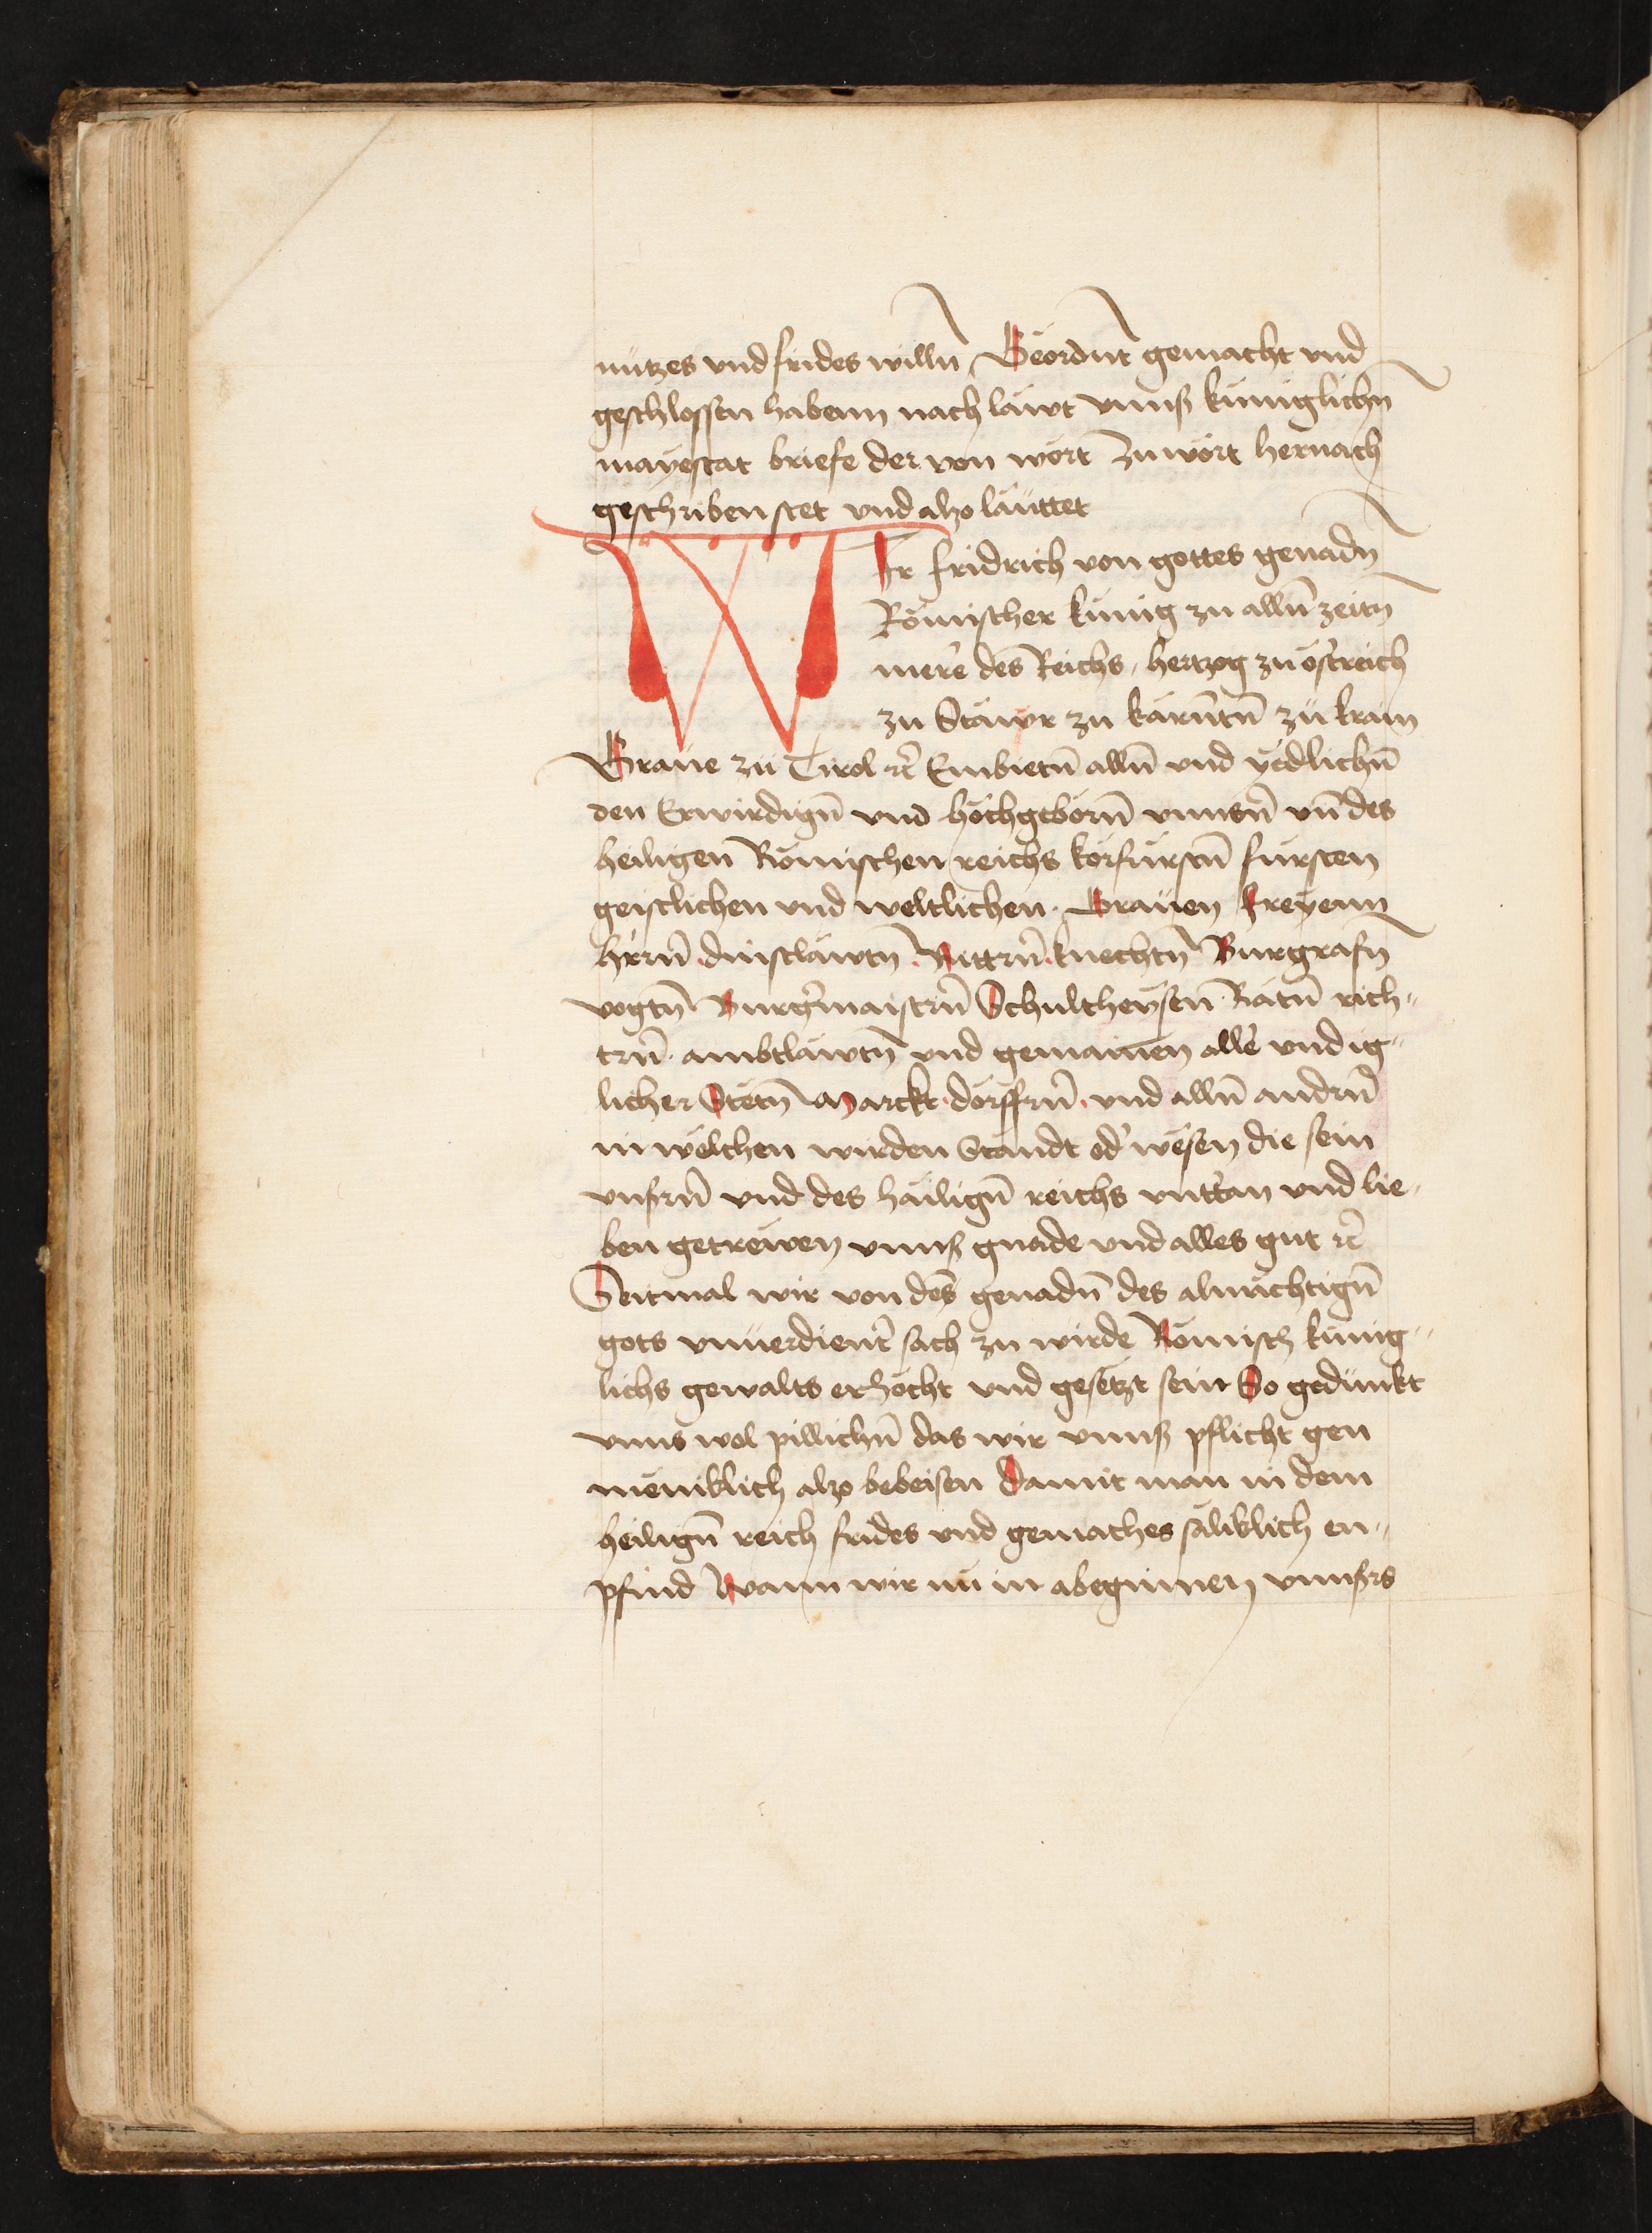 nutzes vnd frides willn̄ Geordn̄t gemacht vnd
geschlossen habenn nach lawt vnnsß kuniglichn̄
mayestat briefe der von wort zu wort hernach
geschriben stet vnd also lauttet
WIr fridrich von gottes genadn̄
Römischer kunig zu alln̄ zeitn̄
mere des Reichs / hertzog zu ostreich
zu Steiwr zu kärnntn̄ zu krain
Graue zu Tirol ꝛc̄ Embietn̄ alln̄ vnd ydlichn̄
den Erwirdign̄ vnd hochgeborn̄ vnnsn̄ vn̄ des
heiligen Römischen reichs korfurstn̄ fursten
geistlichen vnd weltlichen · Grauen Freyenn
hrrn̄ · dinstlawtn̄ · Rittrn̄ · knechtn̄ Burgrafn̄
vogtn̄ Burgmaistrn̄ Schultheysen · Rätn̄ rich„
trn̄ · ambtlawtn̄ vnd gemainen alle vnd ig„
licher Stetn̄ Marckt · dorffrn̄ · vnd alln̄ andrn̄
in welchen wirden Standt od' wesen die sein
vnsrn̄ vnd des häilign̄ reichs vntt'an vnd lie„
ben getrewen vnnsß gnade vnd alles gut ꝛc̄
Seitmal wir von des genadn̄ des almächtign̄
gots vnuerdient' sach zu wirde Römisch kunig„
lichs gewalts erhöcht vnd gesetzt sein So gedunkt
vnns wol pillichn̄ das wir vnnsß pflicht gen
meniklich also bebeisen Damit man in dem
heilign̄ reich frides vnd gemaches säliklich en„
pfind Wann wir nu in abeginnen vnnsrs